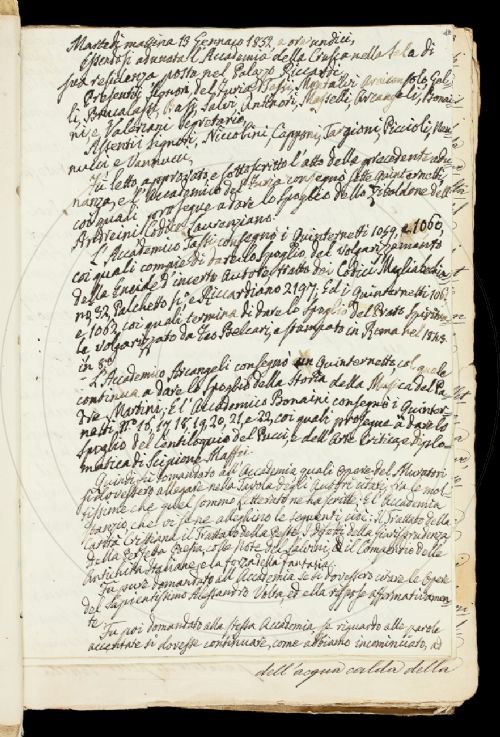 Martedì mattina 13 Gennaro 1852 a ore undici,
essendosi adunata l'Accademia della Crusca nella Sala di
sua residenza posta nel Palazzo Riccardi
Presenti i Signori, del Furia, Tassi, Montalvi Arciconsolo, Gal-
li, Brucalassi, Basi, Salvi, Antinori, Maselli, Arcangeli, Bonai
ni, e Valeriani Segretario,
Assenti i Signori, Niccolini, Capponi, Targioni, Piccioli, Nan-
nucci e Vannucci,
Fu letto, approvato, e sottoscritto l'atto della precedente adu-
nanza, e l'Accademico del Furia consegnò sette Quinternetti,
coi quali prosegue a dare lo Spoglio dello Zibaldone dell'
Andreini Codice Laurenziano.
L'Accademico Tassi consegnò i Quinternetti 1059, e 1060,
coi quali compie di dare lo spoglio del Volgarizzamento
della Eneide d'incerto Autore tratto dai Codici Magliabechia
no, 32, Palchetto 5°, e Riccardiano 2197. Ed i Quinternetti 1061
e 1062 coi quali termina di dare lo spoglio del Prato Spiritua
le volgarizzato da Feo Belcari, e stampato in Roma nel 1843.
in 8°.
L'Accademico Arcangeli consegnò un Quinternetto, col quale
continua a dare lo spoglio della Storia della Musica del Pa-
dre Martini; E l'Accademico Bonaini consegnò i Quinter-
netti N° 16, 17, 18, 19, 20, 21, e 22, coi quali prosegue a dare lo
spoglio del Centiloquio del Pucci, e dell'Arte Critica, e diplo-
matica di Scipione Maffei.
Quindi fu domandato all'Accademia quali Opere del Muratori
si dovessero allegare nella Tavola degli Autori citati, fra le mol-
tissime che quel sommo Letterato ne ha scritte: E l'Accademia
stanziò, che vi se ne alleghino le seguenti cioè: il Trattato della
Carità Cristiana, il Trattato della Peste, I difetti della Giurisprudenza,
Della Perfetta Poesia, colle Note del Salvini, Il Compendio delle
Antichità Italiane, e la forza della fantasia.
Fu pure domandato all'Accademia se si dovessero citare le Opere
del Sapientissimo Alessandro Volta, ed ella rispose affermativamen-
te
Fu poi domandato alla stessa Accademia, se riguardo alle parole
accentate si dovesse continuare, come abbiamo incominciato, ad
dell'acqua calda della